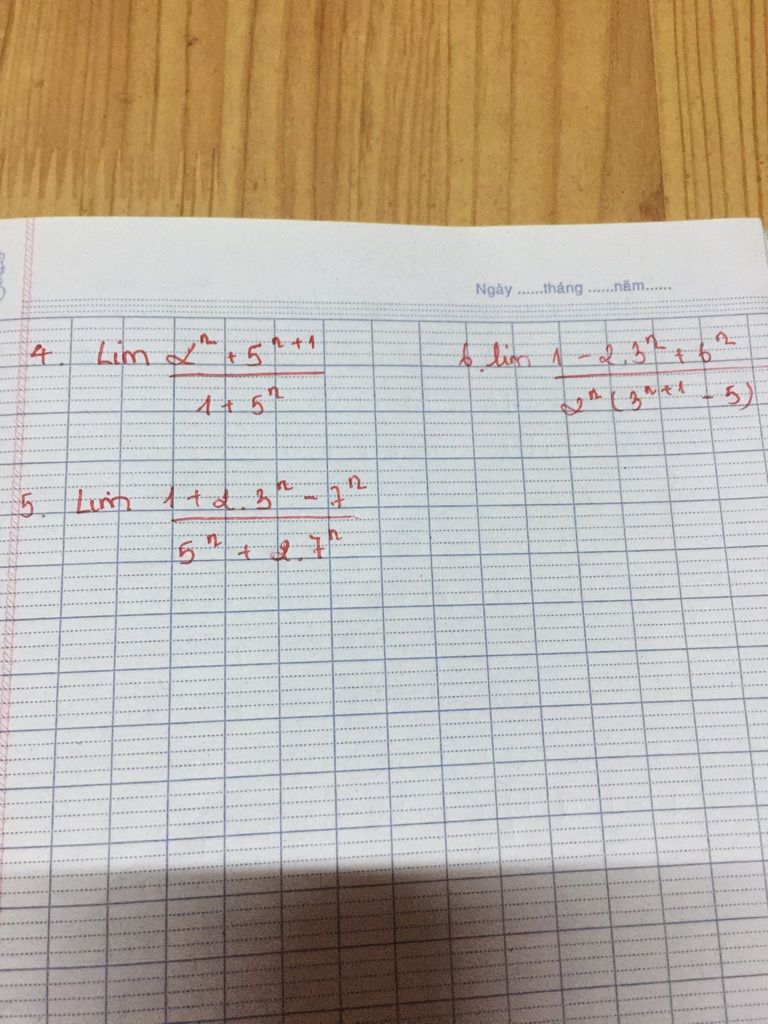 Ngày ......tháng ......năm......
4. Lim (2ⁿ + 5ⁿ⁺¹)/(1 + 5ⁿ)
6. lim (1 - 2.3ⁿ + 6ⁿ)/(2ⁿ (3ⁿ⁺¹ - 5))
5. Lim (1 + 2.3ⁿ - 7ⁿ)/(5ⁿ + 2.7ⁿ)